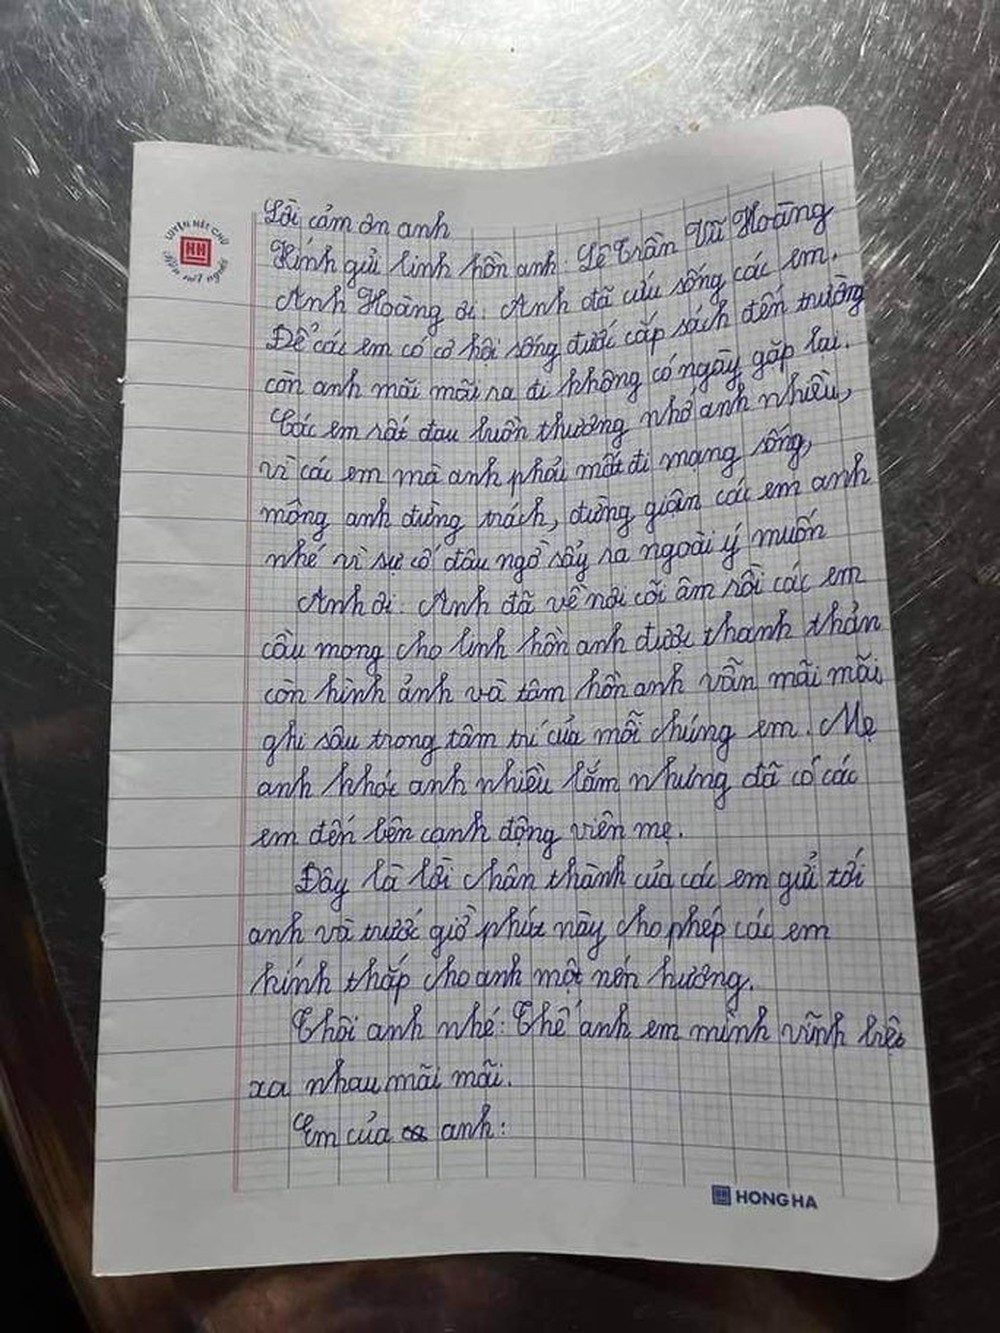 LUYỆN NÉT CHỮ
Rèn nết người
Lời cảm ơn anh
Kính gửi linh hồn anh: Lê Trần Vũ Hoàng
Anh Hoàng ơi. Anh đã cứu sống các em.
Để các em có cơ hội sống được cắp sách đến trường
còn anh mãi mãi ra đi không có ngày gặp lai.
Các em rất đau luôn thương nhớ anh nhiều,
vì các em mà anh phải mất đi mạng sống,
mông anh đừng trách, đừng giận các em anh
nhé vì sự cố đâu ngờ sẩy ra ngoài ý muốn
Anh ơi. Anh đã về nơi cõi âm rồi các em
cầu mong cho linh hồn anh được thanh thản
còn hình ảnh và tâm hồn anh vẫn mãi mãi
ghi sâu trong tâm trí của mỗi chúng em. Mẹ
anh khóc anh nhiều lắm nhưng đã có các
em đến bên cạnh động viên mẹ.
Đây là lời chân thành của các em gửi tới
anh và trước giờ phút này cho phép các em
kính thắp cho anh một nén hương.
Thôi anh nhé: Thế anh em mình vĩnh biệt
xa nhau mãi mãi.
Em của anh:
HONG HA